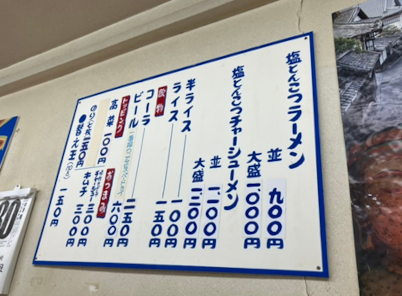 塩とんこつラーメン
並 九〇〇円
大盛 一〇〇〇円
塩とんこつチャーシューメン
並 一二〇〇円
大盛 一三〇〇円
半ライス 一〇〇円
ライス 一五〇円
飲物
コーラ 二五〇円
ビール 六〇〇円
トッピング
高菜 一〇〇円
のり 一五〇円
おつまみ
キムチ 三〇〇円
一五〇円
30